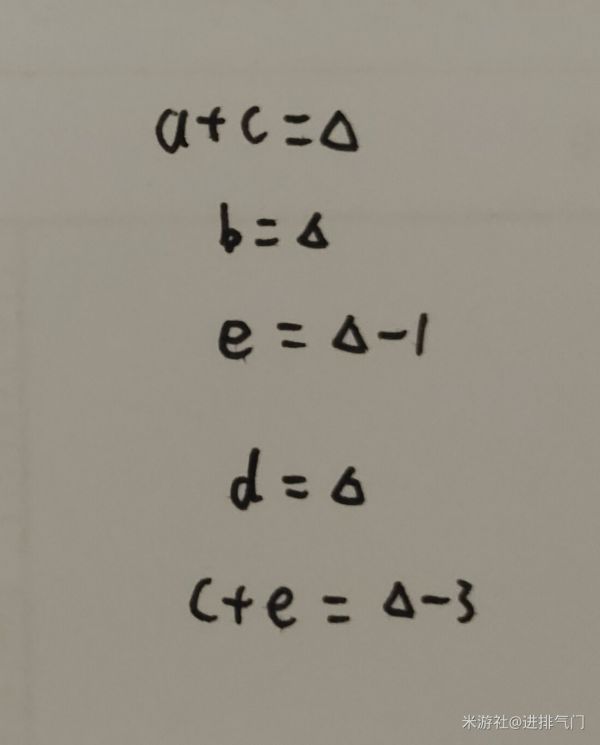 a+c=Δ
b=Δ
e=Δ-1
d=Δ
c+e=Δ-3
米游社@进排气门